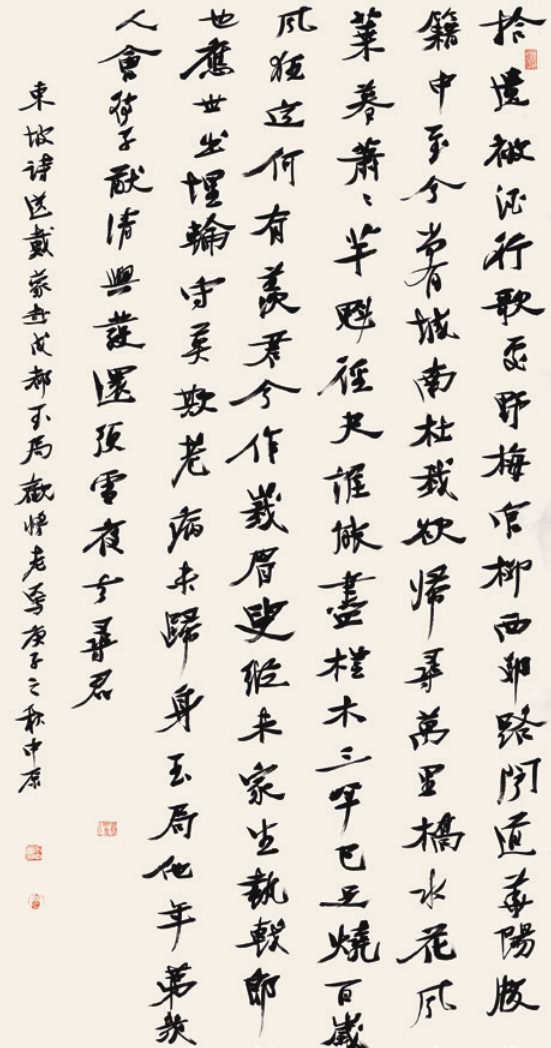 拾遺被酒行歌處野梅官柳西郊路聞道華陽版
籍中至今尚有城南杜我欲歸尋萬里橋水花風
葉暮蕭〻芋魁徑尺誰能盡榿木三年已足燒百歲
風狂定何有羨君今作峨眉叟縱未家生執戟郎
也應世出埋輪守莫欺老病未歸身玉局他年第幾
人會待子猷清興發還須雪夜去尋君
東坡詩送戴蒙赴成都玉局觀將老焉庚子之秋中原